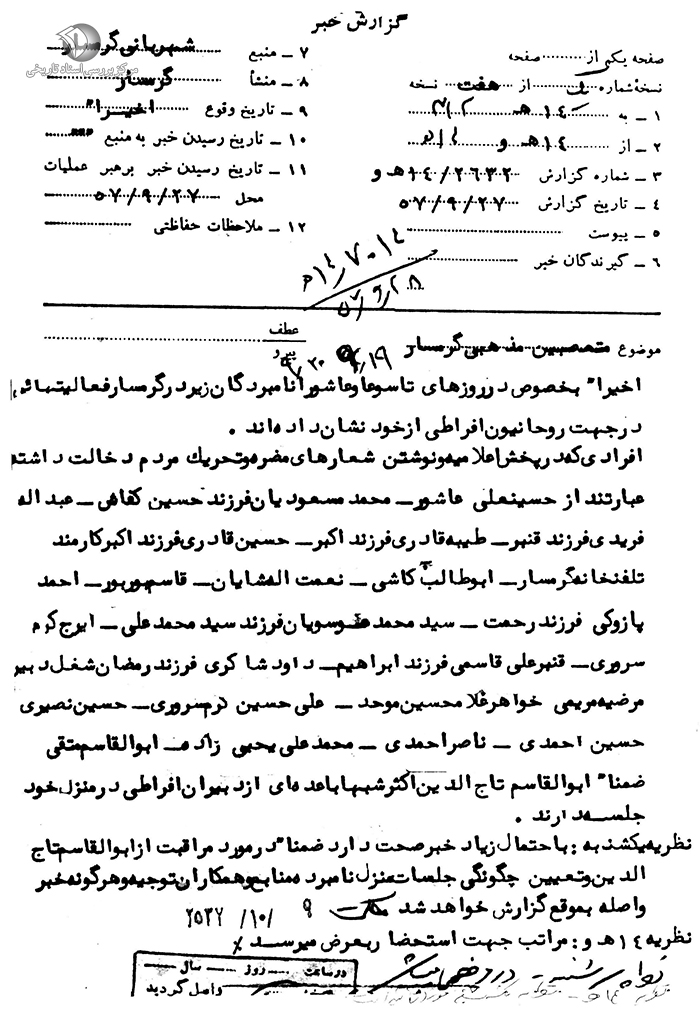 گزارش خبر
مرکز بررسی اسناد تاریخی
صفحه یکی از صفحه
نسخهٔ شماره از هفت نسخه
۱ ــ به ۱۴هـ ۳۱۲
۲ ــ از ۱۴هـ و
۳ ــ شماره گزارش ۱۴/۲۶۳۲هـ و
۴ ــ تاریخ گزارش ۵۷/۹/۲۷
۵ ــ پیوست
۶ ــ گیرندگان خبر
۷ ــ منبع شهربانی گرمسار
۸ ــ منشأ گرمسار
۹ ــ تاریخ وقوع اخیرا"
۱۰ ــ تاریخ رسیدن خبر به منبع
۱۱ ــ تاریخ رسیدن خبر برهبر عملیات
محل ۵۷/۹/۲۷
۱۲ ــ ملاحظات حفاظتی
موضوع متعصبین مذهبی گرمسار
عطف
پیرو
اخیرا" بخصوص درروزهای تاسوعا وعاشورا نامبردگان زیر درگرمسار فعالیتهائی
درجهت روحانیون افراطی ازخود نشان داده اند .
افرادی که درپخش اعلامیه ونوشتن شعارهای مضره وتحریك مردم دخالت داشته
عبارتند از حسینعلی عاشور ــ محمد مسعودیان فرزند حسین کفاهی ــ عبداله
فریدی فرزند قنبر ــ طیبه قادری فرزند اکبر ــ حسین قادری فرزند اکبر کارمند
تلفنخانه گرمسار ــ ابوطالب کاشی ــ نعمت اله شایان ــ قاسم پورپور ــ احمد
پازوکی فرزند رحمت ــ سید محمد موسویان فرزند سید محمد علی ــ ایرج کرم
سروری ــ قنبرعلی قاسمی فرزند ابراهیم ــ داود شاکری فرزند رمضان شغل دبیر
مرضیه مریمی خواهر غلامحسین موحد ــ علی حسین کرم سروری ــ حسین نصیری
حسین احمدی ــ ناصر احمدی ــ محمد علی یحیی زاده ــ ابوالقاسم متقی
ضمنا" ابوالقاسم تاج الدین اکثر شبها باعده ای ازدبیران افراطی درمنزل خود
جلسه دارند .
نظریه یکشنبه : با احتمال زیاد خبر صحت دارد ضمنا" درمورد مراقبت از ابوالقاسم تاج
الدین وتعیین چگونگی جلسات منزل نامبرده منابع وهمکاران توجیه وهرگونه خبر
واصله بموقع گزارش خواهد شد ۹ /۱۰/ ۲۵۳۷
نظریه ۱۴هـ و : مراتب جهت استحضار بعرض میرسد
در ساعت روز سال
واصل گردید